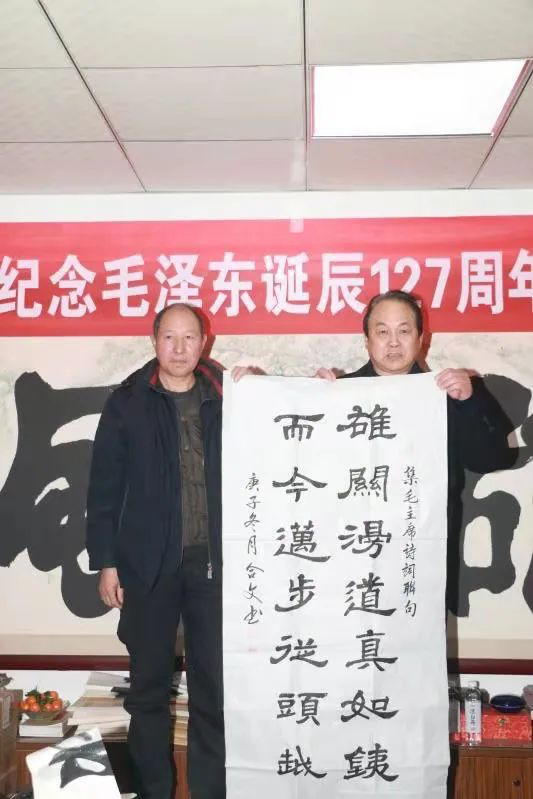 纪念毛泽东诞辰127周年
集毛主席詩詞聯句
雄關漫道真如銕
而今邁步從頭越
庚子冬月合文书